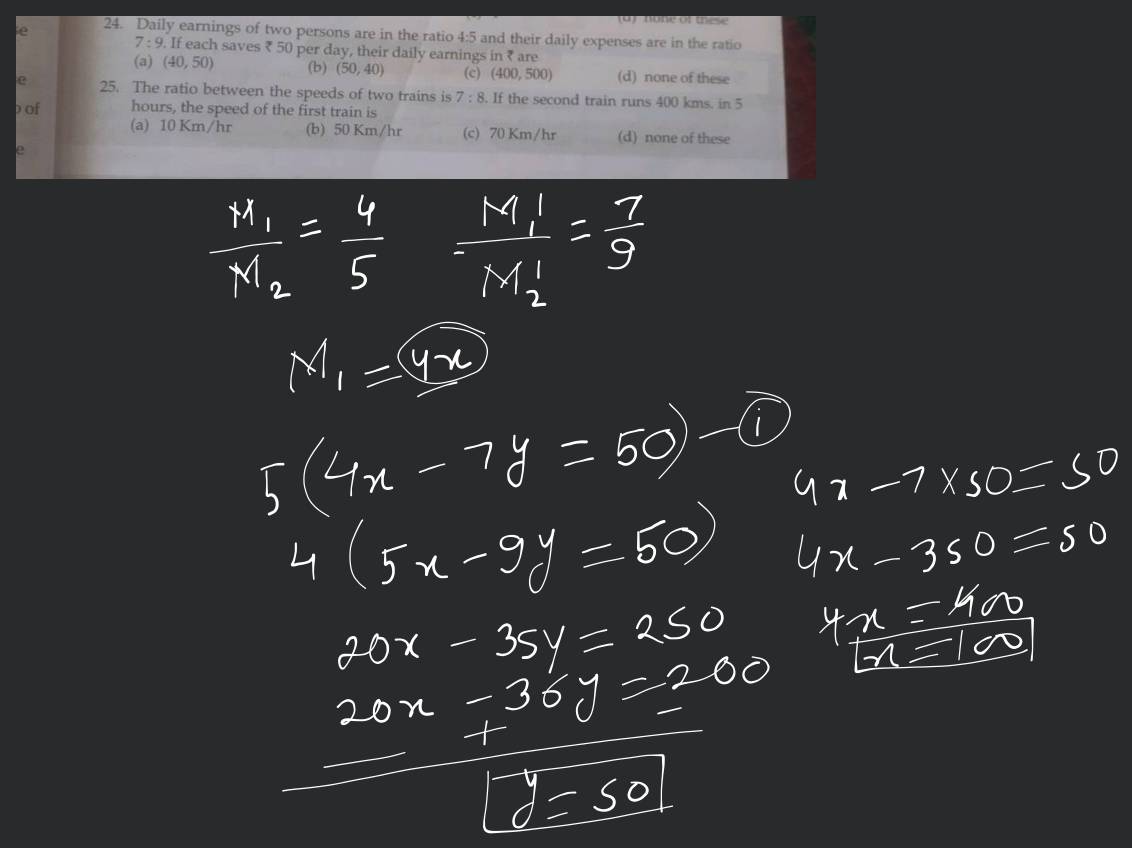 (d) none of these
24. Daily earnings of two persons are in the ratio 4:5 and their daily expenses are in the ratio
7 : 9. If each saves ₹ 50 per day, their daily earnings in ₹ are
(a) (40, 50) (b) (50, 40) (c) (400, 500) (d) none of these
25. The ratio between the speeds of two trains is 7 : 8. If the second train runs 400 kms. in 5
hours, the speed of the first train is
(a) 10 Km/hr (b) 50 Km/hr (c) 70 Km/hr (d) none of these
se
e
of
e
M₁/M₂ = 4/5 M₁'/M₂' = 7/9
M₁ = 4x
5(4x - 7y = 50) - i
4(5x - 9y = 50)
20x - 35y = 250
20x - 36y = 200
+ -
y = 50
4x - 7 × 50 = 50
4x - 350 = 50
4x = 400
x = 100